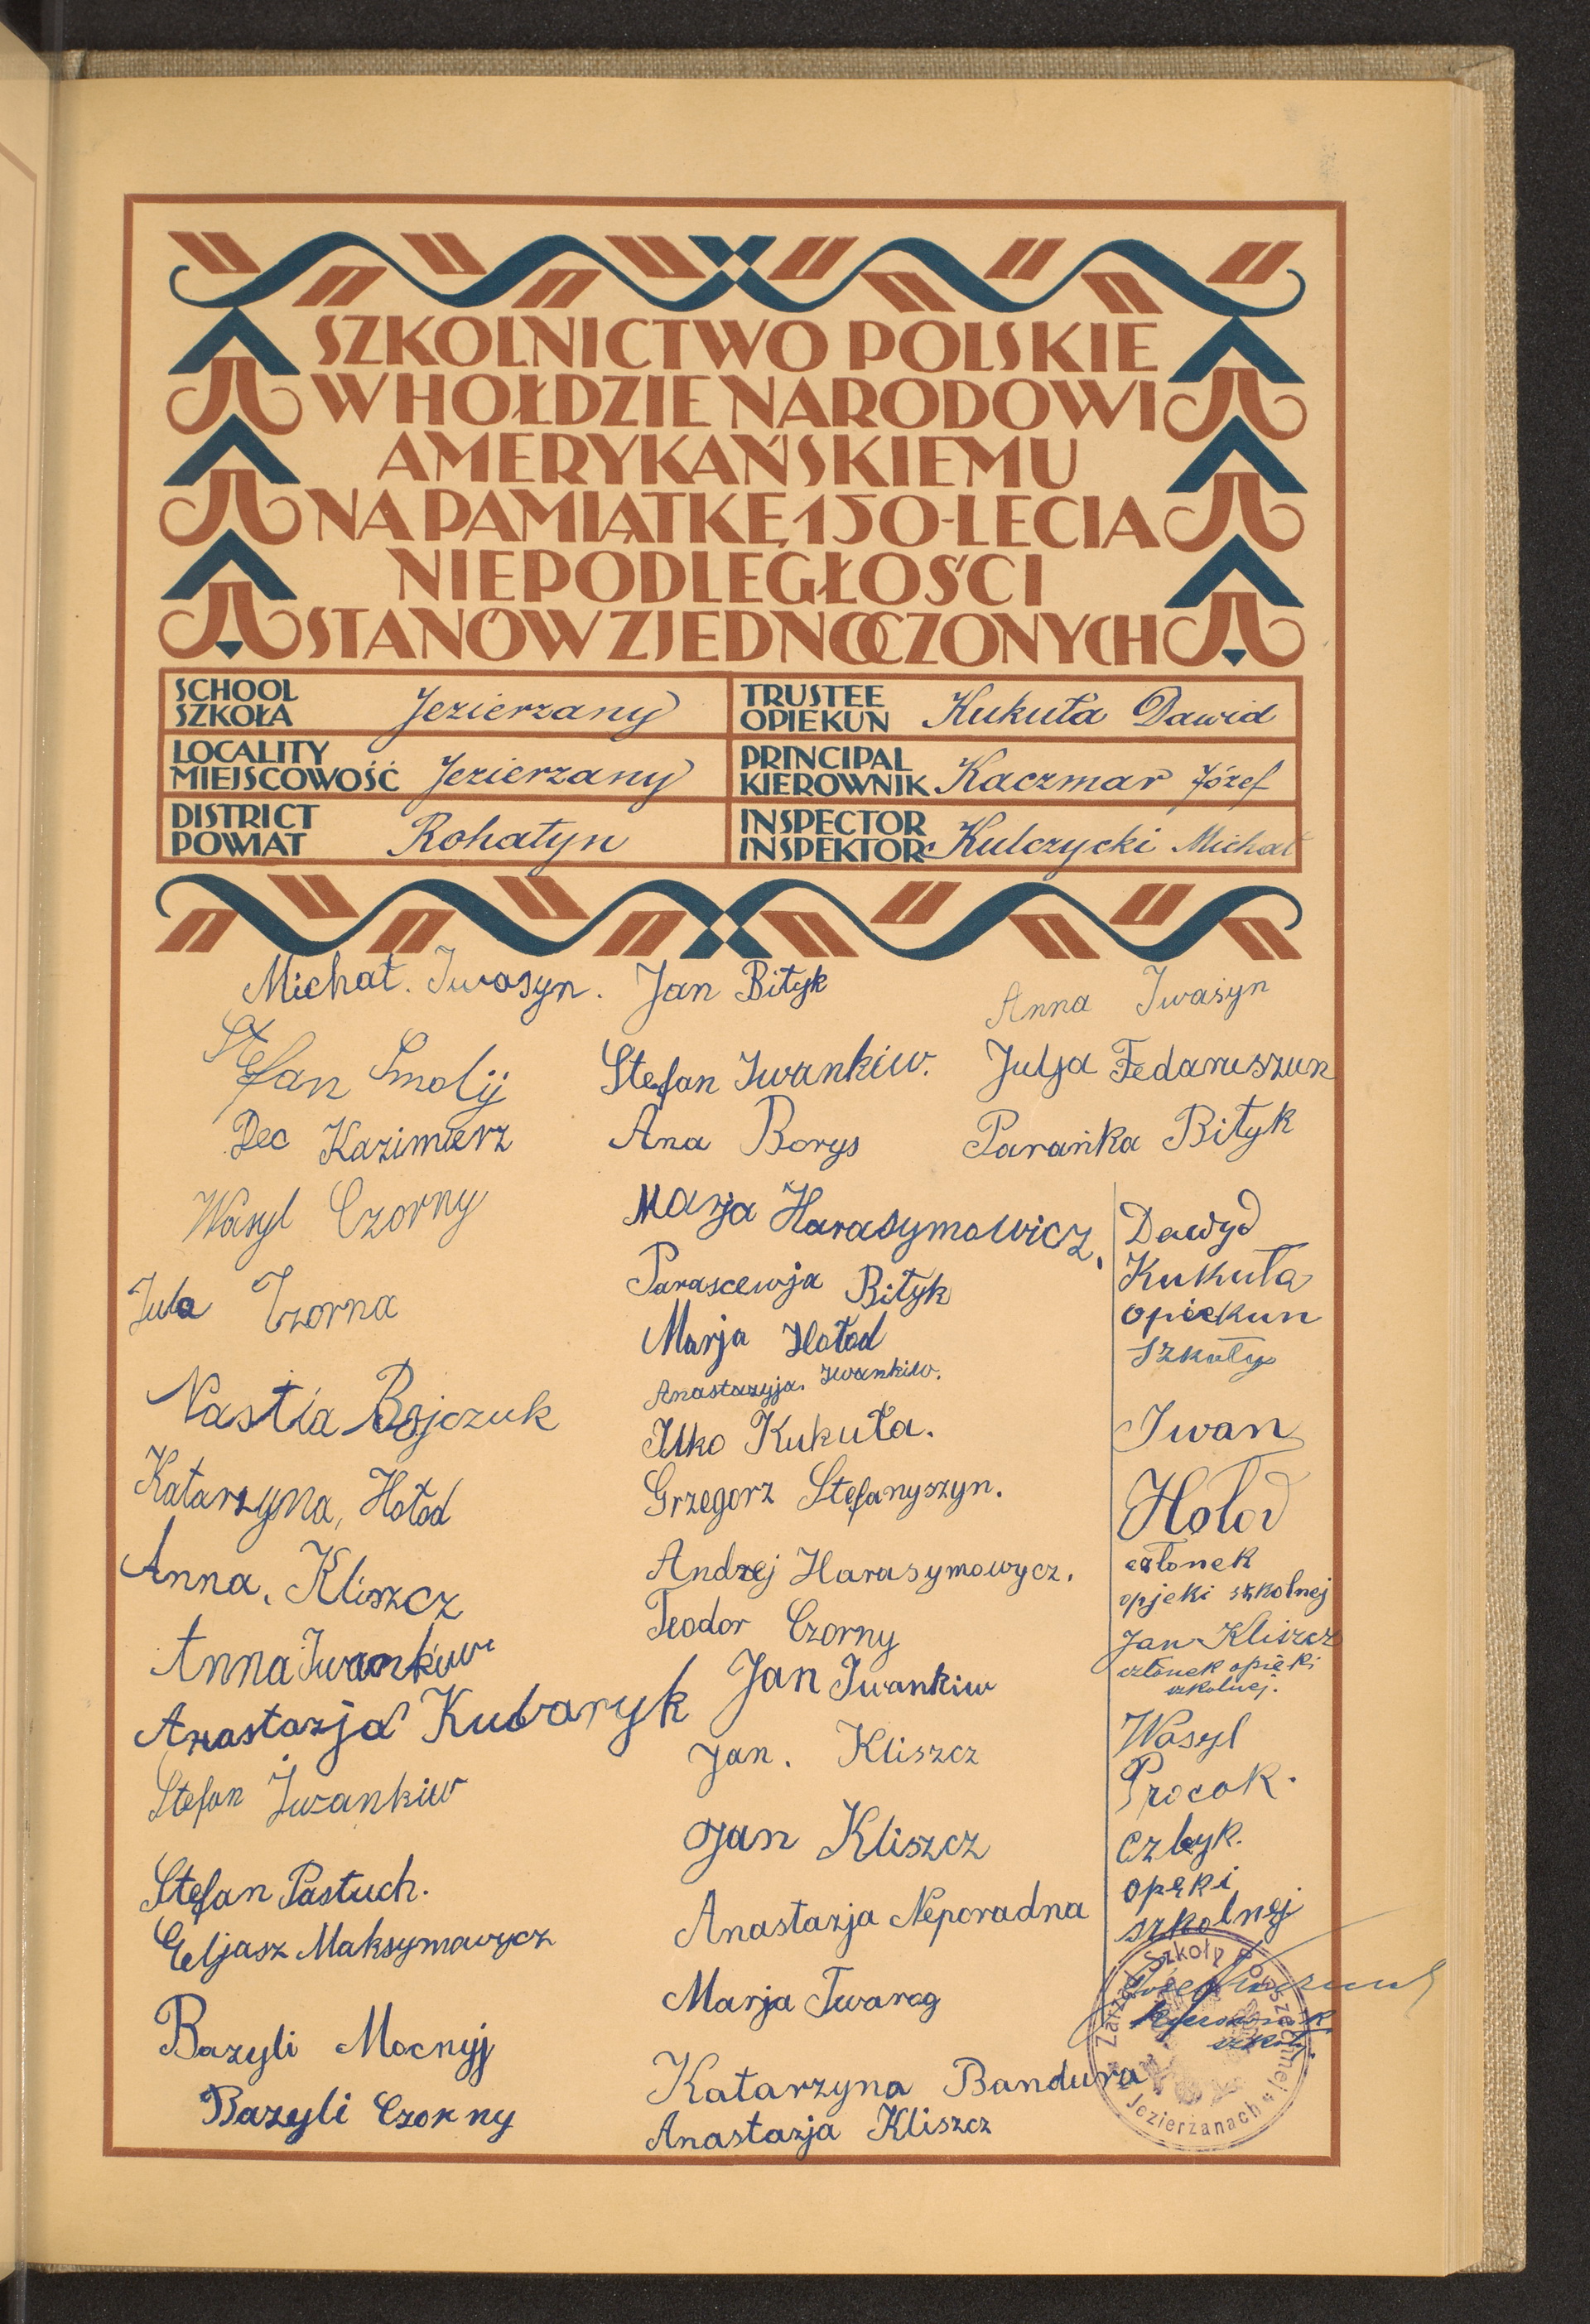 SZKOLNICTWO POLSKIE
W HOŁDZIE NARODOWI
AMERYKAŃSKIEMU
NA PAMIĄTKĘ 150-LECIA
NIEPODLEGŁOŚCI
STANÓW ZJEDNOCZONYCH
SCHOOL
SZKOŁA Jezierzany
TRUSTEE
OPIEKUN Kukuła Dawid
LOCALITY
MIEJSCOWOŚĆ Jezierzany
PRINCIPAL
KIEROWNIK Kaczmar Józef
DISTRICT
POWIAT Rohatyn
INSPECTOR
INSPEKTOR Kulczycki Michał
Michał. Iwasyn.
Stefan Smolij
Dec Kazimierz
Wasyl Czorny
Jula Czorna
Nastia Bojczuk
Katarzyna, Hołod
Anna, Kliszcz
Anna Iwankiw
Anastazja Kubaryk
Stefan Iwankiw
Stefan Pastuch.
Eljasz Maksymowycz
Bazyli Mocnyj
Bazyli Czorny
Jan Bityk
Stefan Iwankiw.
Ana Borys
Marja Harasymowicz,
Parascewja Bityk
Marja Hołod
Anastazyja. Iwankiw.
Ilko Kukuła.
Grzegorz Stefanyszyn.
Andrzej Harasymowycz.
Teodor Czorny
Jan Iwankiw
Jan. Kliszcz
Jan Kliszcz
Anastazja Neporadna
Marja Twarog
Katarzyna Bandura
Anastazja Kliszcz
Anna Iwasyn
Julja Fedaruszun
Parańka Bityk
Dawyd
Kukuła
opiekun
szkoły
Iwan
Hołod
członek
opjeki szkolnej
Jan Kliszcz
członek opieki
szkolnej.
Wasyl
Procak.
opęki
szkolnej
Zarząd Szkoły Powszechnej
Jezierzanach